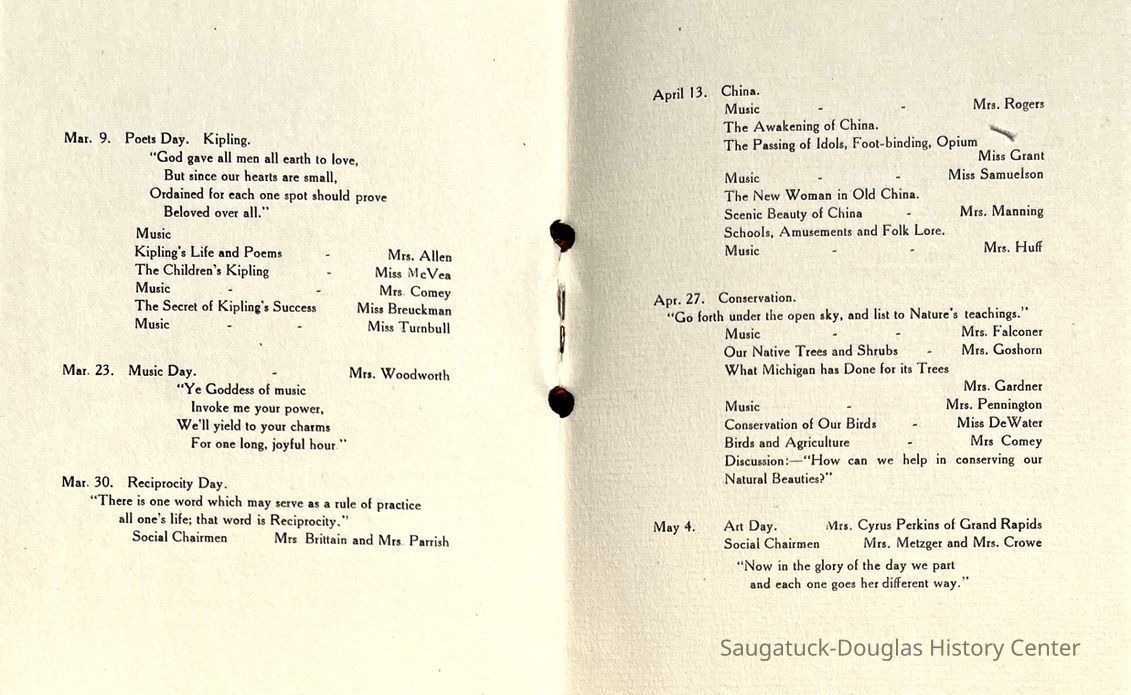 Mar. 9. Poets Day. Kipling.
"God gave all men all earth to love,
But since our hearts are small,
Ordained for each one spot should prove
Beloved over all."
Music
Kipling's Life and Poems - Mrs. Allen
The Children's Kipling - Miss McVea
Music - - Mrs. Comey
The Secret of Kipling's Success Miss Breuckman
Music - - Miss Turnbull
Mar. 23. Music Day. - Mrs. Woodworth
"Ye Goddess of music
Invoke me your power,
We'll yield to your charms
For one long, joyful hour."
Mar. 30. Reciprocity Day.
"There is one word which may serve as a rule of practice
all one's life; that word is Reciprocity."
Social Chairmen Mrs Brittain and Mrs. Parrish
April 13. China.
Music - - Mrs. Rogers
The Awakening of China.
The Passing of Idols, Foot-binding, Opium
Miss Grant
Music - - Miss Samuelson
The New Woman in Old China.
Scenic Beauty of China - Mrs. Manning
Schools, Amusements and Folk Lore.
Music - - Mrs. Huff
Apr. 27. Conservation.
"Go forth under the open sky, and list to Nature's teachings."
Music - - Mrs. Falconer
Our Native Trees and Shrubs - Mrs. Goshorn
What Michigan has Done for its Trees
Mrs. Gardner
Music - Mrs. Pennington
Conservation of Our Birds - Miss DeWater
Birds and Agriculture - Mrs Comey
Discussion:—"How can we help in conserving our
Natural Beauties?"
May 4. Art Day. Mrs. Cyrus Perkins of Grand Rapids
Social Chairmen Mrs. Metzger and Mrs. Crowe
"Now in the glory of the day we part
and each one goes her different way."
Saugatuck-Douglas History Center